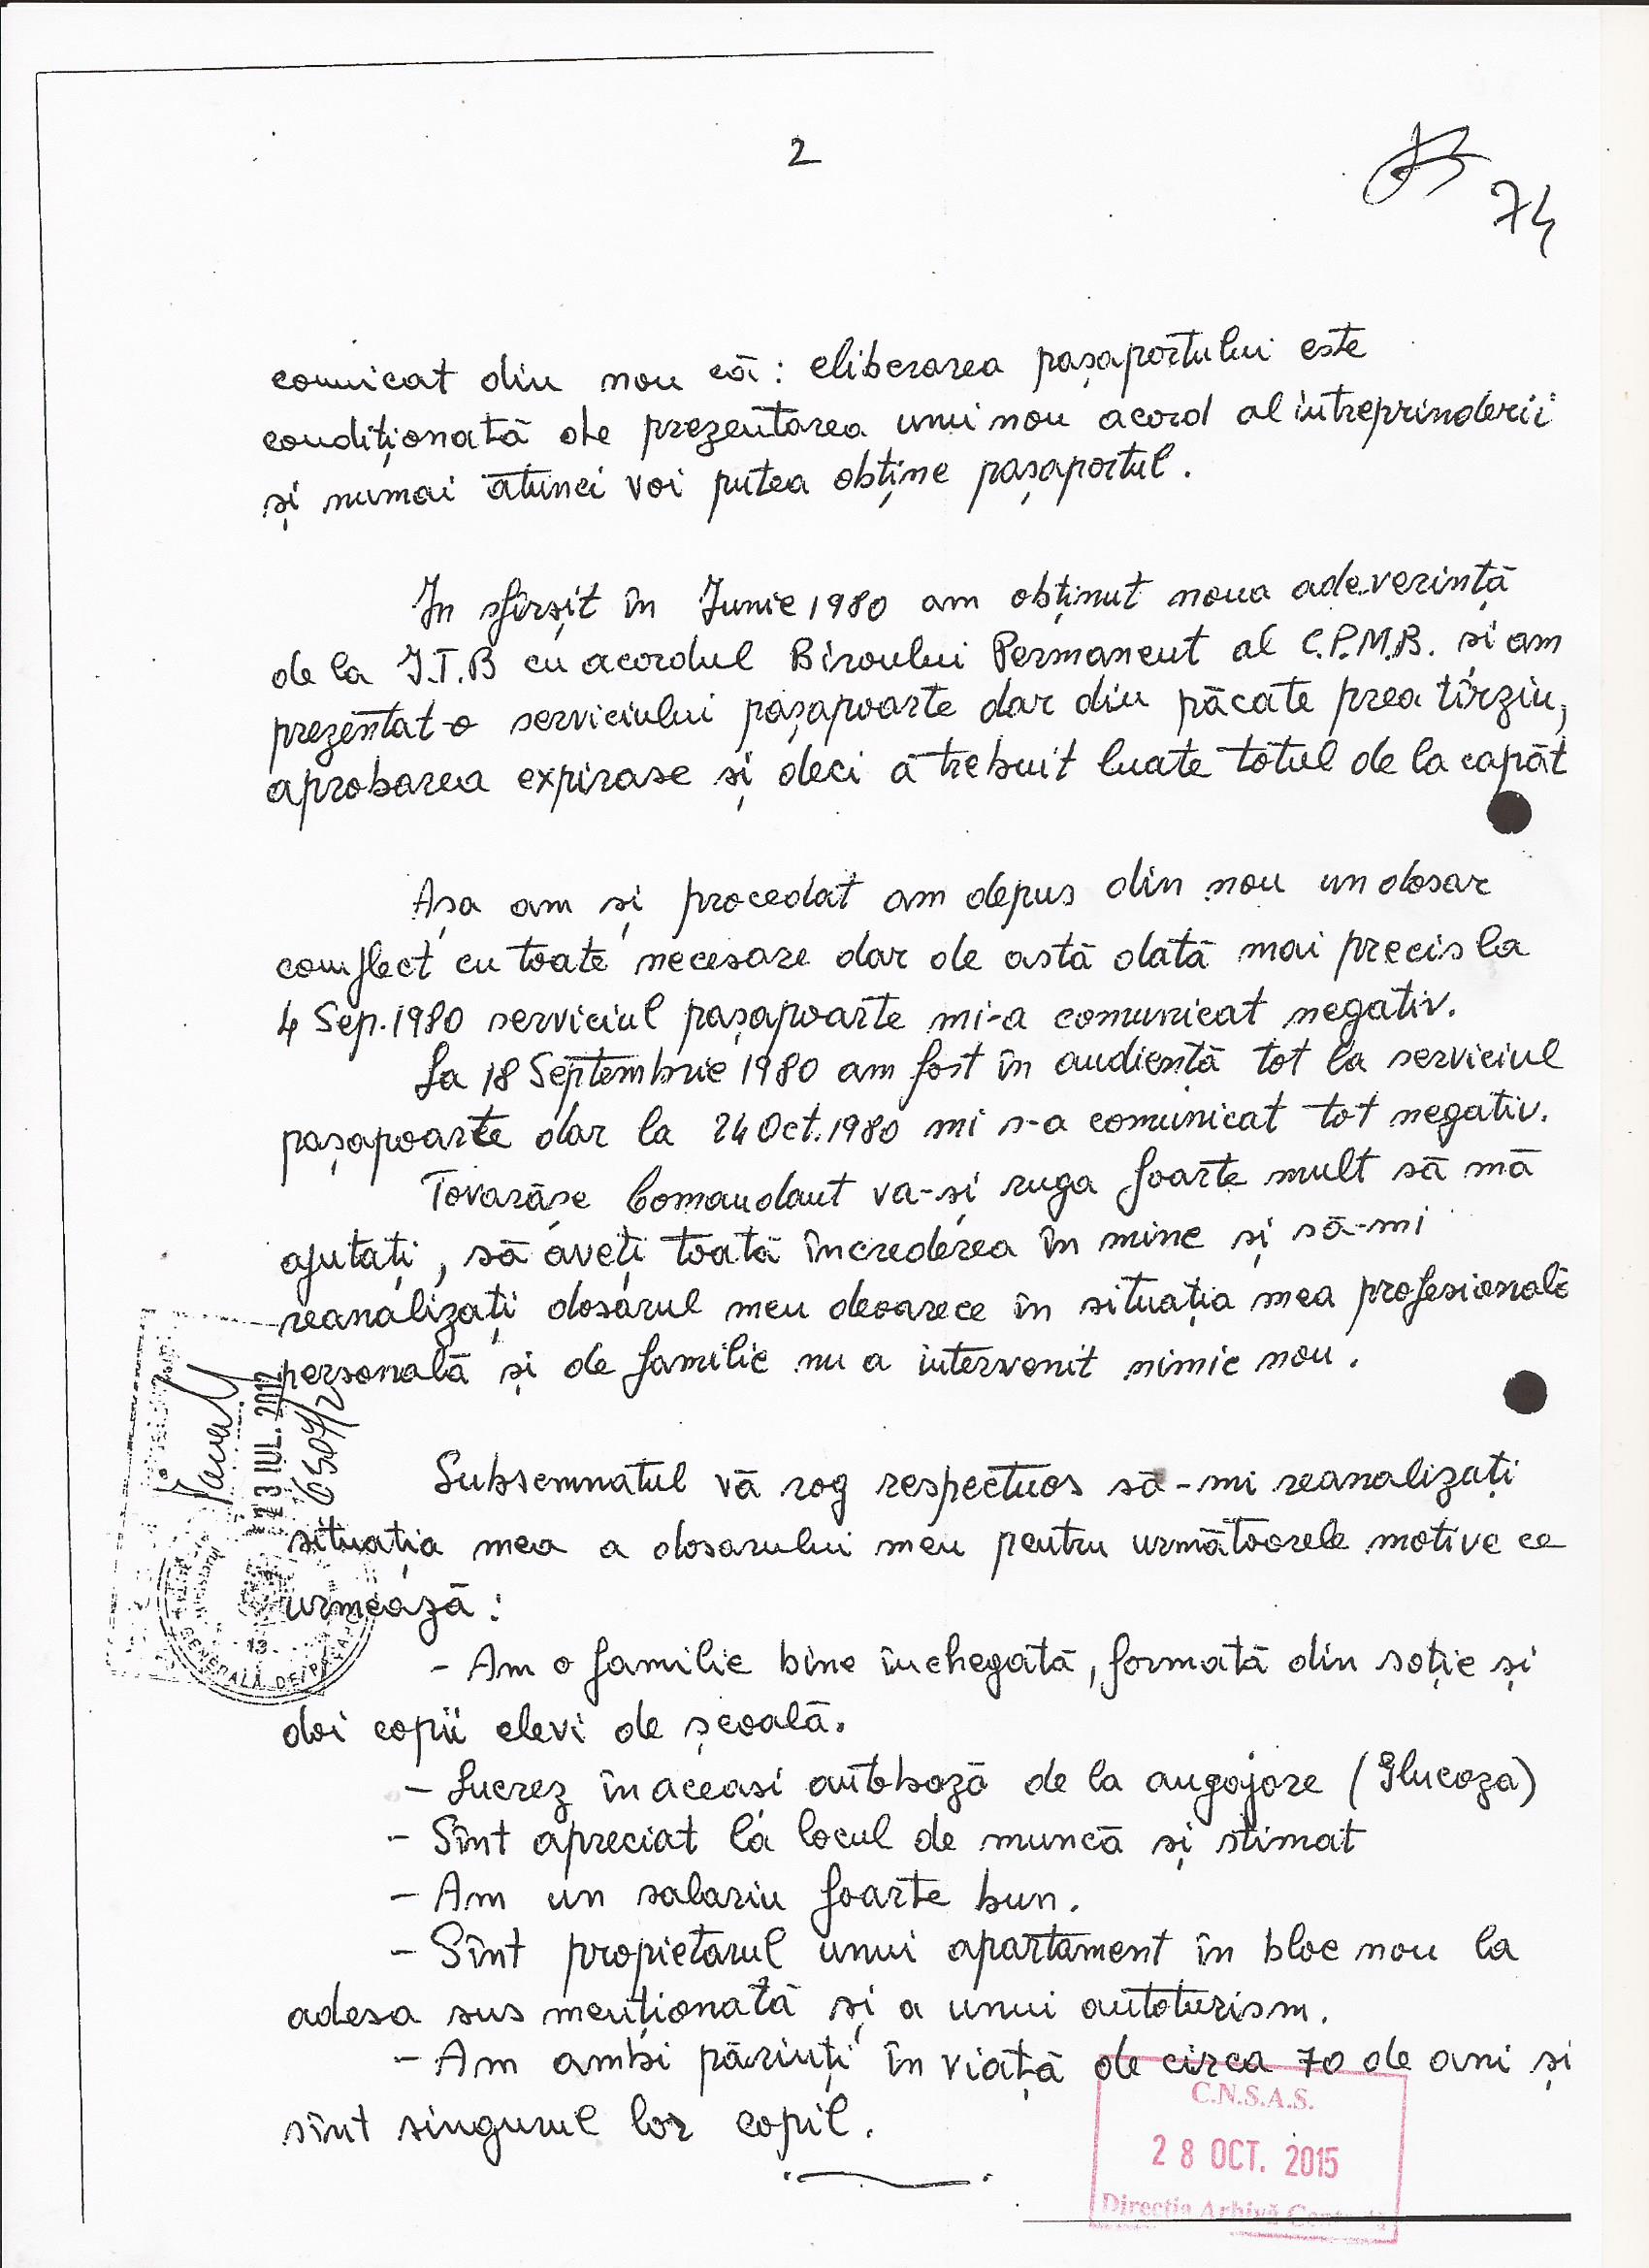 2
74
comnicat din nou că: eliberarea pașaportului este
condiționată de prezentarea unui nou acord al intreprinderii
și numai atunci voi putea obține pașaportul.
In sfîrșit în Iunie 1980 am obținut noua adeverință
de la I.T.B cu acordul Biroului Permanent al C.P.M.B. și am
prezentat-o serviciului pașapoarte dar din păcate prea tîrziu,
aprobarea expirase și deci a trebuit luate totul de la capăt
Așa am și procedat am depus din nou un dosar
complect cu toate necesare dar de astă dată mai precis la
4 Sep. 1980 serviciul pașapoarte mi-a comunicat negativ.
La 18 Septembrie 1980 am fost în audiență tot la serviciul
pașapoarte dar la 24 Oct. 1980 mi s-a comunicat tot negativ.
Tovarășe Comandant va-și ruga foarte mult să mă
ajutați, să aveți toată încrederea în mine și să-mi
reanalizați dosarul meu deoarece în situația mea profesională
personală și de familie nu a intervenit nimic nou.
Subsemnatul vă rog respectuos să-mi reanalizați
situația mea a dosarului meu pentru următoarele motive ce
urmează:
- Am o familie bine închegată, formată din soție și
doi copii elevi de școală.
- Lucrez în aceasi autobază de la angajare (Glucoza)
- Sînt apreciat la locul de muncă și stimat
- Am un salariu foarte bun.
- Sînt propietarul unui apartament în bloc nou la
adesa sus menționată și a unui autoturism.
- Am ambi părinți în viață de circa 70 de ani și
sînt singurul lor copil.
13 IUL. 2012
GENERALĂ DE PAȘAP
C.N.S.A.S.
28 OCT. 2015
Direcția Arhivă Centrală